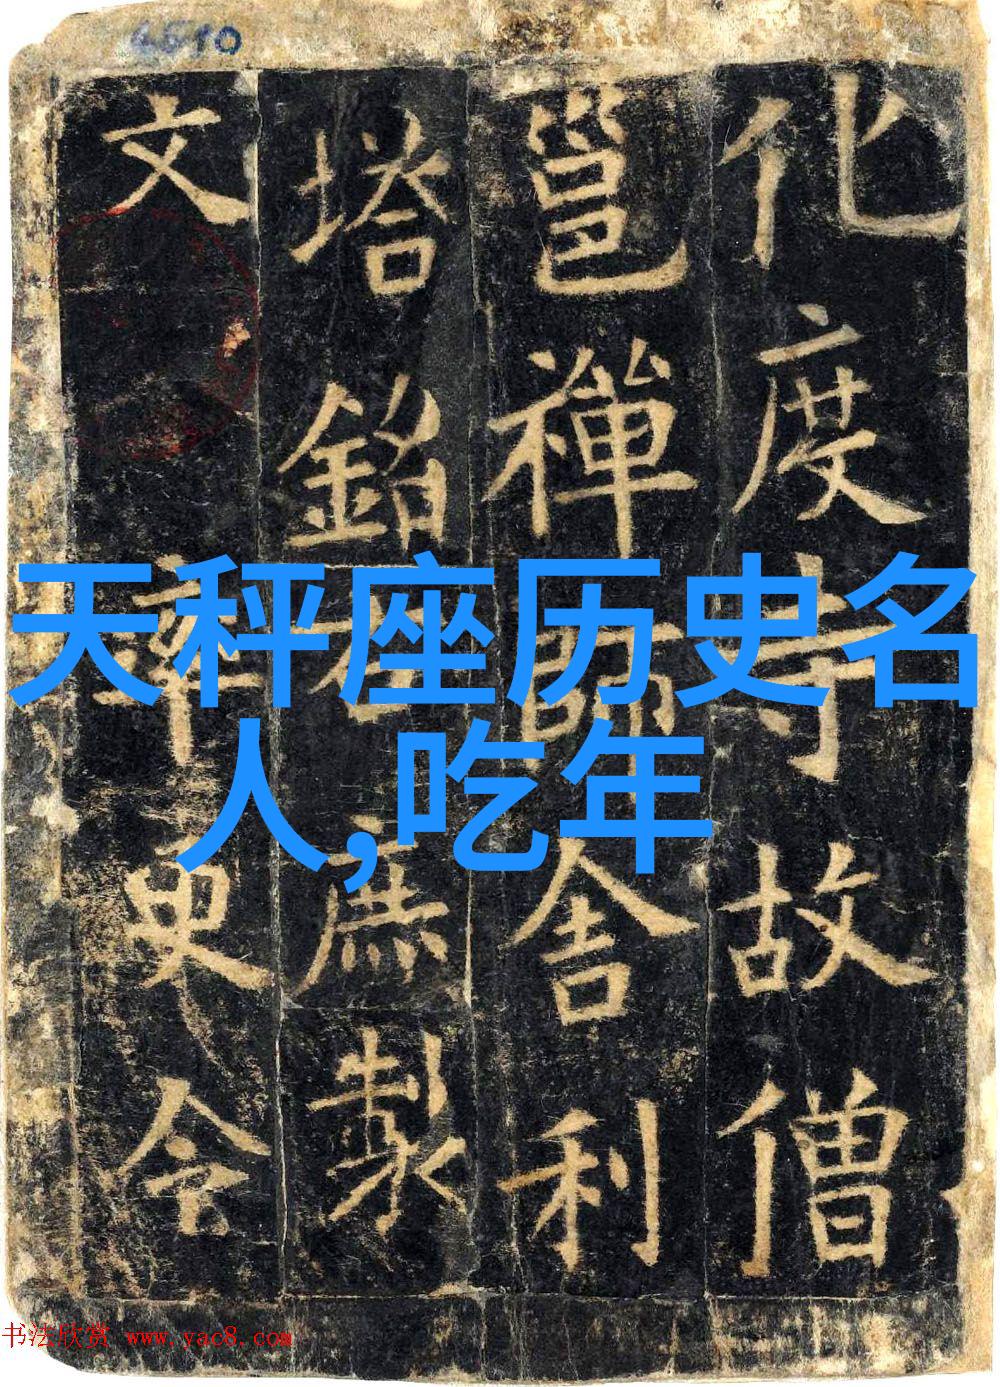 6510
化度寺故僧
邕禪師舍利
塔銘右庶製
文率更令
天秤座历史名
人,吃年
书法欣赏 www.yac8.com